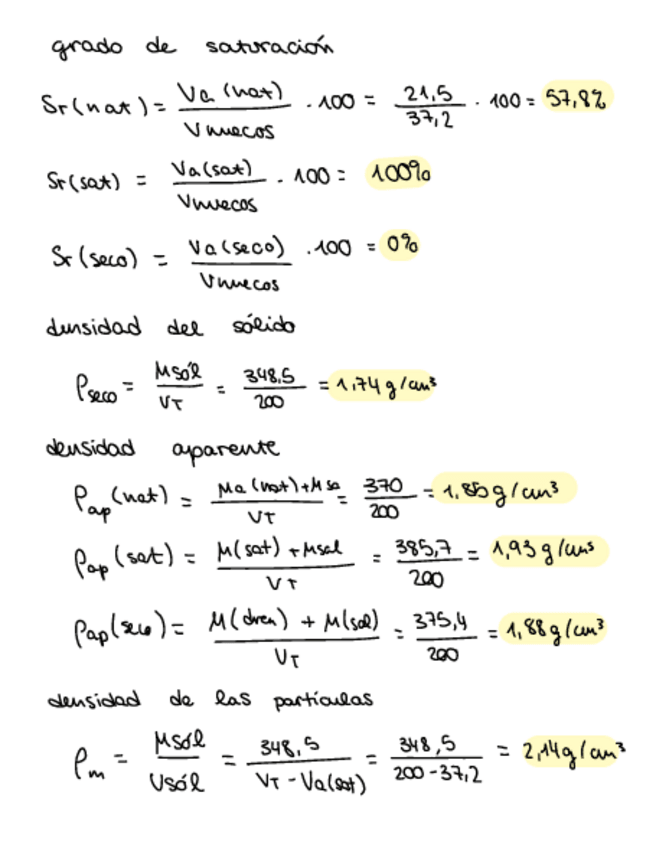 grado de saturación
Sr(nat) = Va (nat) / Vhuecos · 100 = 21,5 / 37,2 · 100 = 57,8%
Sr(sat) = Va(sat) / Vhuecos · 100 = 100%
Sr(seco) = Va(seco) / Vhuecos · 100 = 0%
densidad del sólido
ρseco = Msól / VT = 348,5 / 200 = 1,74 g/cm³
densidad aparente
ρap(nat) = Ma(nat)+Mso / VT = 370 / 200 = 1,85 g/cm³
ρap(sat) = M(sat) + Msol / VT = 385,7 / 200 = 1,93 g/cm³
ρap(seco) = M(dren) + M(sol) / VT = 375,4 / 200 = 1,88 g/cm³
densidad de las partículas
ρm = Msól / Vsól = 348,5 / VT - Va(sat) = 348,5 / 200-37,2 = 2,14 g/cm³